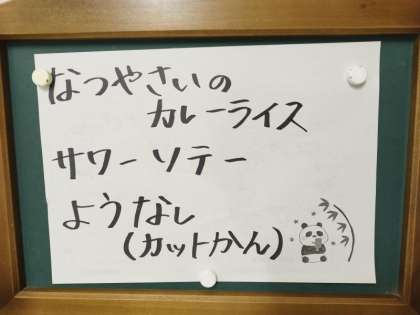 なつやさいの
カレーライス
サワーソテー
ようなし
(カットかん)